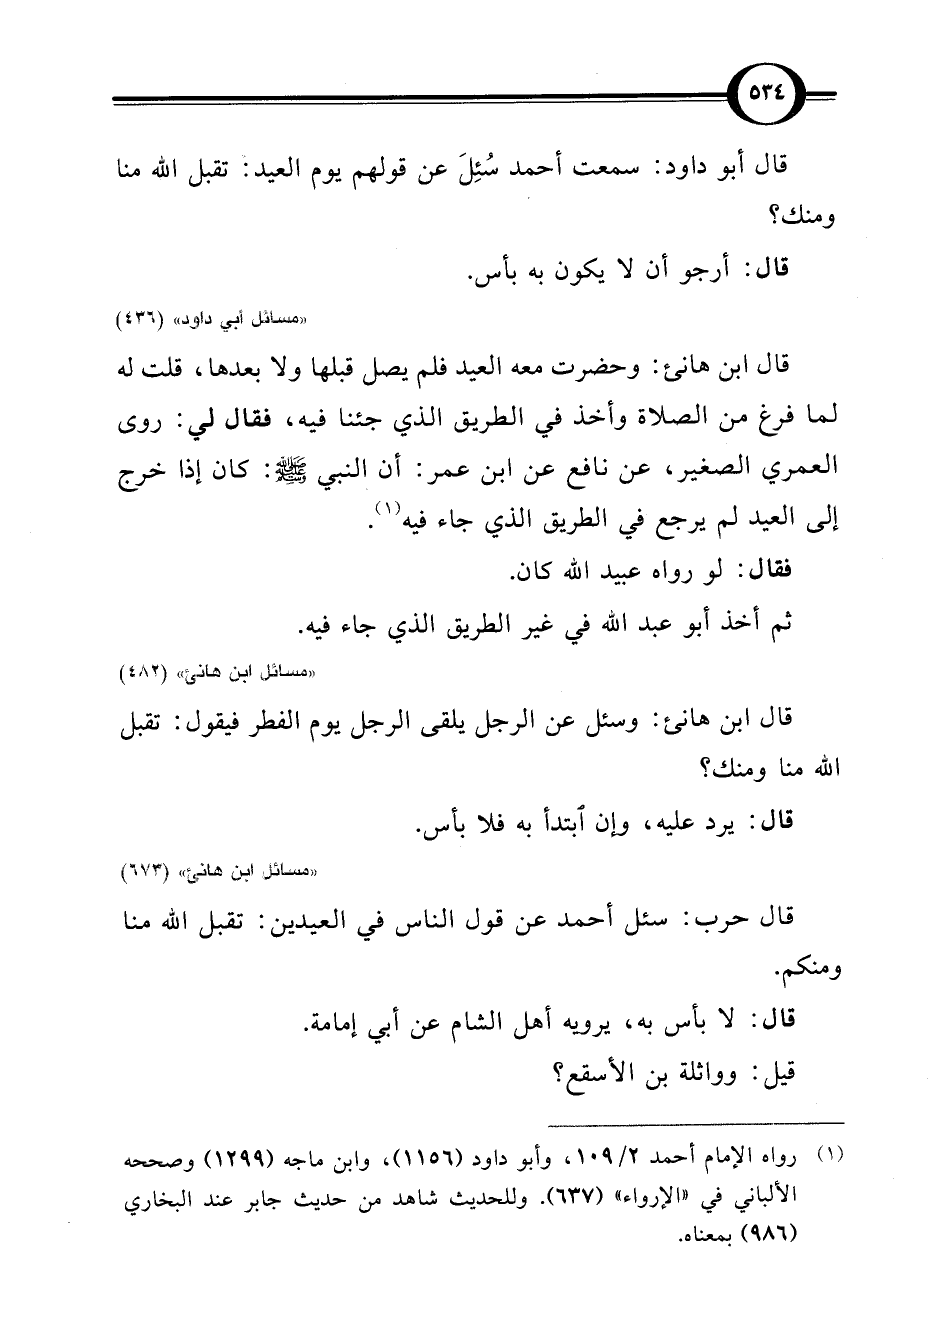 ٥٣٤
قال أبو داود: سمعت أحمد سُئِلَ عن قولهم يوم العيد: تقبل الله منا
ومنك؟
قال: أرجو أن لا يكون به بأس.
«مسائل أبي داود» (٤٣٦)
قال ابن هانئ: وحضرت معه العيد فلم يصل قبلها ولا بعدها، قلت له
لما فرغ من الصلاة وأخذ في الطريق الذي جئنا فيه، فقال لي: روى
العمري الصغير، عن نافع عن ابن عمر: أن النبي ﷺ: كان إذا خرج
إلى العيد لم يرجع في الطريق الذي جاء فيه(١).
فقال: لو رواه عبيد الله كان.
ثم أخذ أبو عبد الله في غير الطريق الذي جاء فيه.
«مسائل ابن هانئ» (٤٨٢)
قال ابن هانئ: وسئل عن الرجل يلقى الرجل يوم الفطر فيقول: تقبل
الله منا ومنك؟
قال: يرد عليه، وإن ٱبتدأ به فلا بأس.
«مسائل ابن هانئ» (٦٧٣)
قال حرب: سئل أحمد عن قول الناس في العيدين: تقبل الله منا
ومنكم.
قال: لا بأس به، يرويه أهل الشام عن أبي إمامة.
قيل: وواثلة بن الأسقع؟
(١) رواه الإمام أحمد ١٠٩/٢، وأبو داود (١١٥٦)، وابن ماجه (١٢٩٩) وصححه
الألباني في «الإرواء» (٦٣٧). وللحديث شاهد من حديث جابر عند البخاري
(٩٨٦) بمعناه.